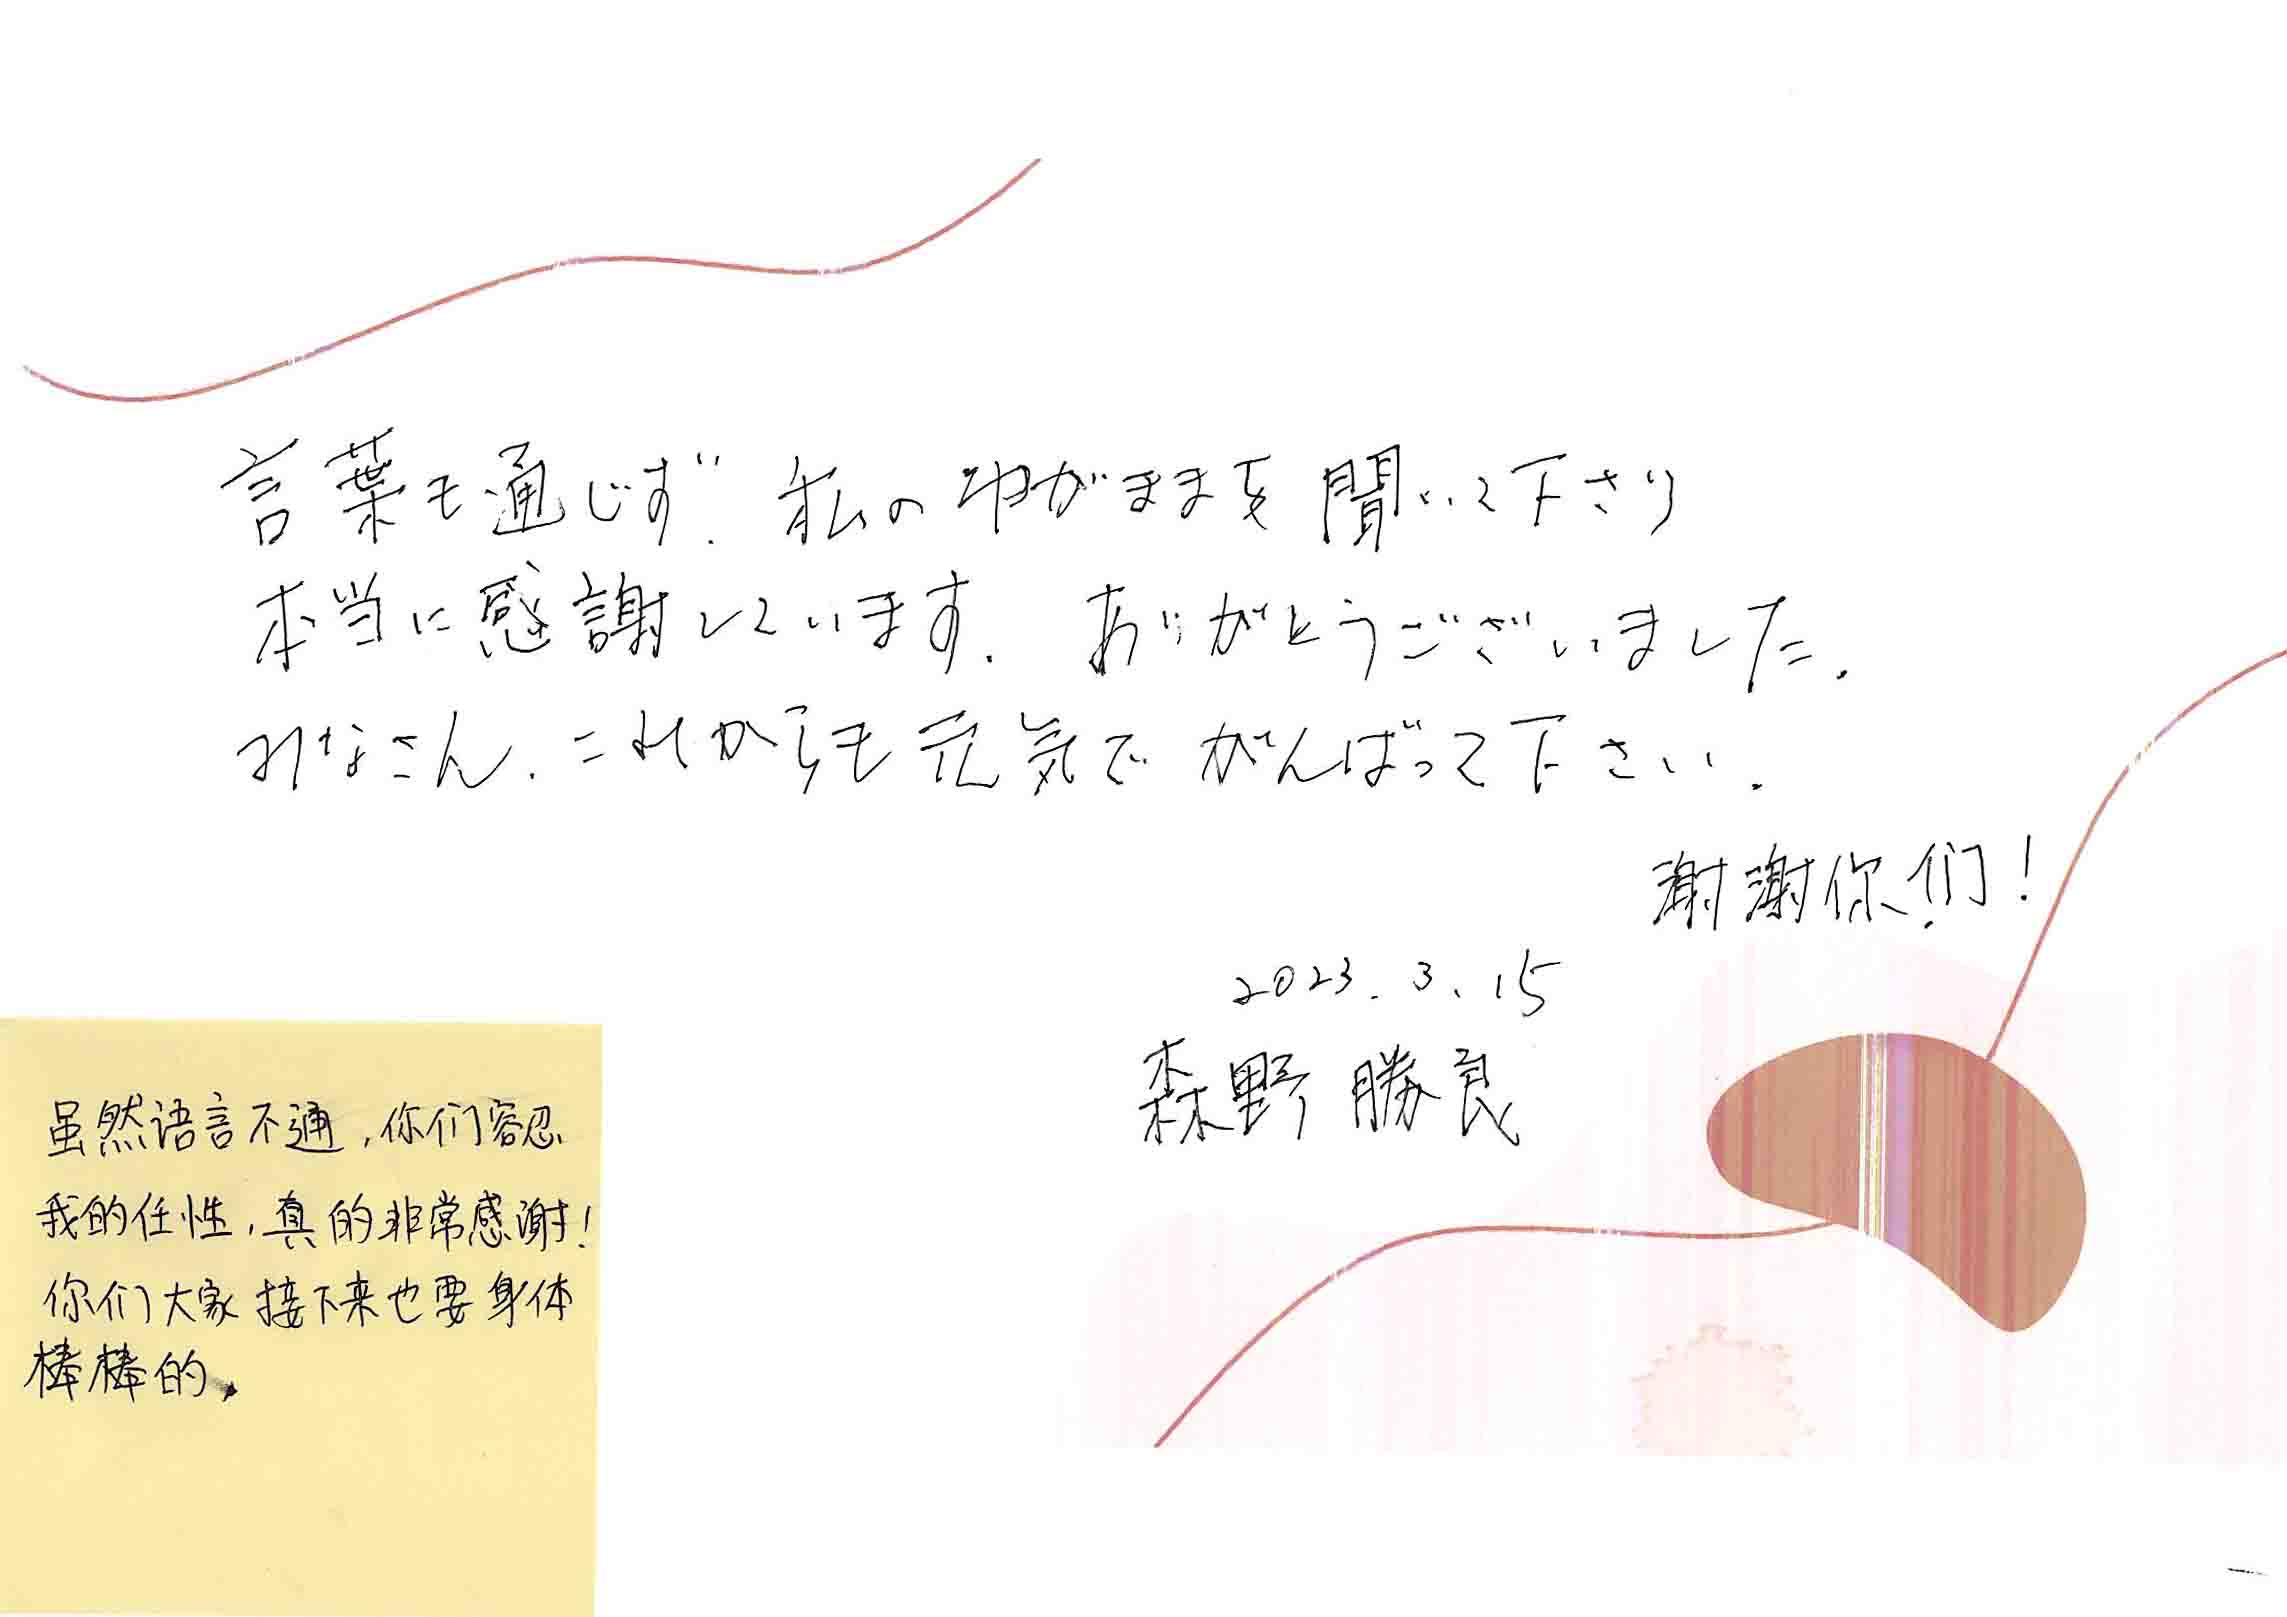 言葉も通じず、私のわがままを聞いて下さり
本当に感謝しています。ありがとうございました。
みなさん、これからも元気でがんばって下さい。
谢谢你们！
2023.3.15
森野勝良
虽然语言不通，你们容忍
我的任性，真的非常感谢！
你们大家接下来也要身体
棒棒的。